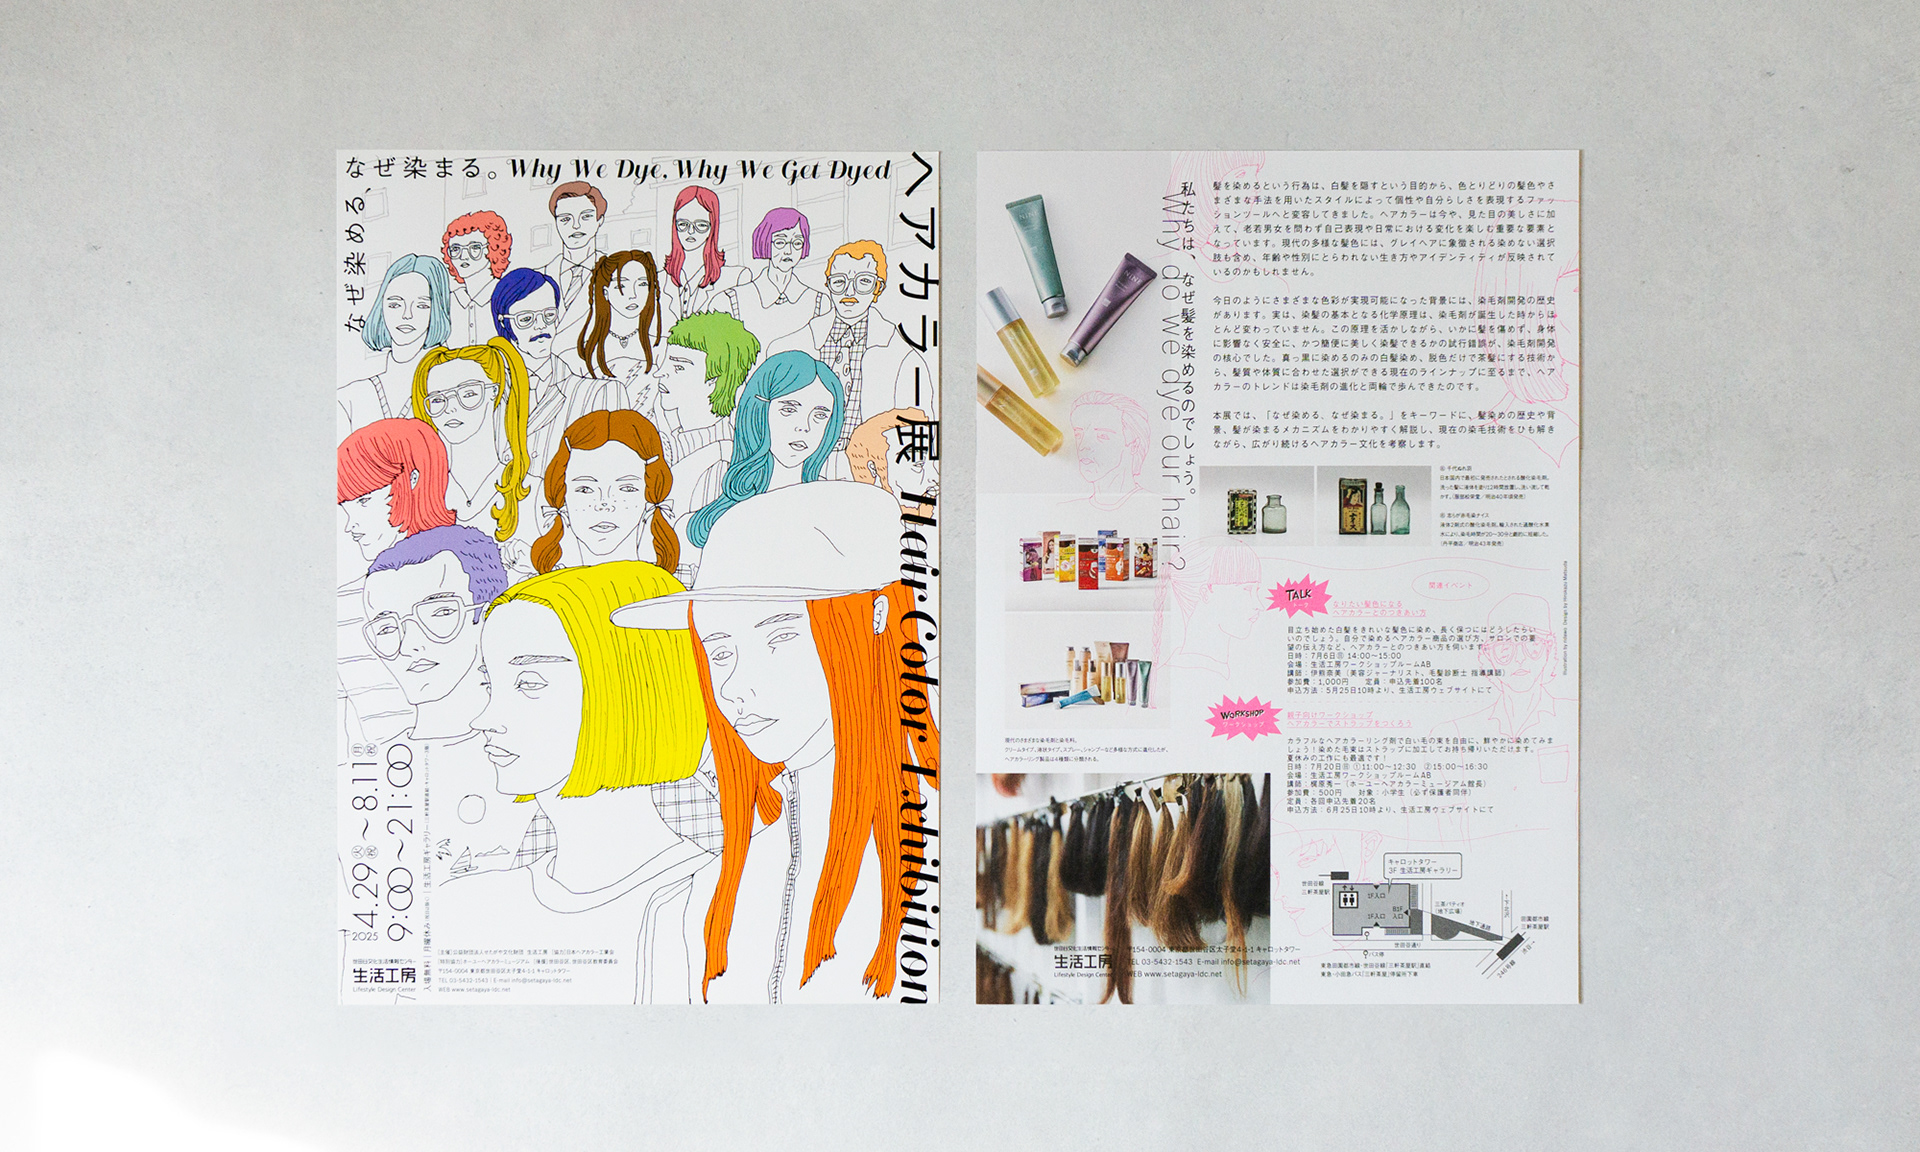 なぜ染まる。Why We Dye, Why We Get Dyed
なぜ染める、
ヘアカラー展 Hair Color Exhibition
2025 4.29(火・祝)〜8.11(月・祝)
9:00〜21:00
入場無料｜月曜休み
生活工房ギャラリー
世田谷文化生活情報センター
生活工房
Lifestyle Design Center
[主催]公益財団法人せたがや文化財団 生活工房 [協力]日本ヘアカラー工業会
[特別協力]ホーユーヘアカラーミュージアム [後援]世田谷区、世田谷区教育委員会
〒154-0004 東京都世田谷区太子堂4-1-1 キャロットタワー
TEL 03-5432-1543｜E-mail info@setagaya-ldc.net
WEB www.setagaya-ldc.net
私たちは、なぜ髪を染めるのでしょう。
Why do we dye our hair?
髪を染めるという行為は、白髪を隠すという目的から、色とりどりの髪色やさ
まざまな手法を用いたスタイルによって個性や自分らしさを表現するファッ
ションツールへと変容してきました。ヘアカラーは今や、見た目の美しさに加
えて、老若男女を問わず自己表現や日常における変化を楽しむ重要な要素と
なっています。現代の多様な髪色には、グレイヘアに象徴される染めない選択
肢も含め、年齢や性別にとらわれない生き方やアイデンティティが反映されて
いるのかもしれません。
今日のようにさまざまな色彩が実現可能になった背景には、染毛剤開発の歴史
があります。実は、染髪の基本となる化学原理は、染毛剤が誕生した時からほ
とんど変わっていません。この原理を活かしながら、いかに髪を傷めず、身体
に影響なく安全に、かつ簡便に美しく染髪できるかの試行錯誤が、染毛剤開発
の核心でした。真っ黒に染めるのみの白髪染め、脱色だけで茶髪にする技術か
ら、髪質や体質に合わせた選択ができる現在のラインナップに至るまで、ヘア
カラーのトレンドは染毛剤の進化と両輪で歩んできたのです。
本展では、「なぜ染める、なぜ染まる。」をキーワードに、髪染めの歴史や背
景、髪が染まるメカニズムをわかりやすく解説し、現在の染毛技術をひも解き
ながら、広がり続けるヘアカラー文化を考察します。
千代ぬれ羽
日本国内で最初に発売されたとされる酸化染毛剤。
志らが赤毛染ナイス
現代のさまざまな染毛剤と染毛料。
クリームタイプ、液状タイプ、スプレー、シャンプーなど多様な方式に進化したが、
ヘアカラーリング製品は4種類に分類される。
関連イベント
TALK
トーク
なりたい髪色になる
ヘアカラーとのつきあい方
目立ち始めた白髪をきれいな髪色に染め、長く保つにはどうしたらい
いのでしょう。自分で染めるヘアカラー商品の選び方、サロンでの要
望の伝え方など、ヘアカラーとのつきあい方を伺います。
日時：7月6日(日) 14:00〜15:00
会場：生活工房ワークショップルームAB
講師：伊熊奈美（美容ジャーナリスト、毛髪診断士 指導講師）
参加費：1,000円 定員：申込先着100名
申込方法：5月25日10時より、生活工房ウェブサイトにて
WORKSHOP
ワークショップ
親子向けワークショップ
ヘアカラーでストラップをつくろう
カラフルなヘアカラーリング剤で白い毛の束を自由に、鮮やかに染めてみま
しょう！染めた毛束はストラップに加工してお持ち帰りいただけます。
夏休みの工作にも最適です！
日時：7月20日(日) ①11:00〜12:30 ②15:00〜16:30
会場：生活工房ワークショップルームAB
講師：梶原秀一（ホーユーヘアカラーミュージアム館長）
参加費：500円 対象：小学生（必ず保護者同伴）
定員：各回申込先着20名
申込方法：6月25日10時より、生活工房ウェブサイトにて
キャロットタワー
3F 生活工房ギャラリー
世田谷線
三軒茶屋駅
1F入口
1F入口
B1F
入口
三茶パティオ
（地下広場）
地下通路
↑下北沢
田園都市線
三軒茶屋駅
世田谷通り
バス停
246号線
渋谷→
東急田園都市線・世田谷線「三軒茶屋駅」直結
東急・小田急バス「三軒茶屋」停留所下車
世田谷文化生活情報センター
生活工房
Lifestyle Design Center
〒154-0004 東京都世田谷区太子堂4-1-1 キャロットタワー
TEL 03-5432-1543 E-mail info@setagaya-ldc.net
WEB www.setagaya-ldc.net